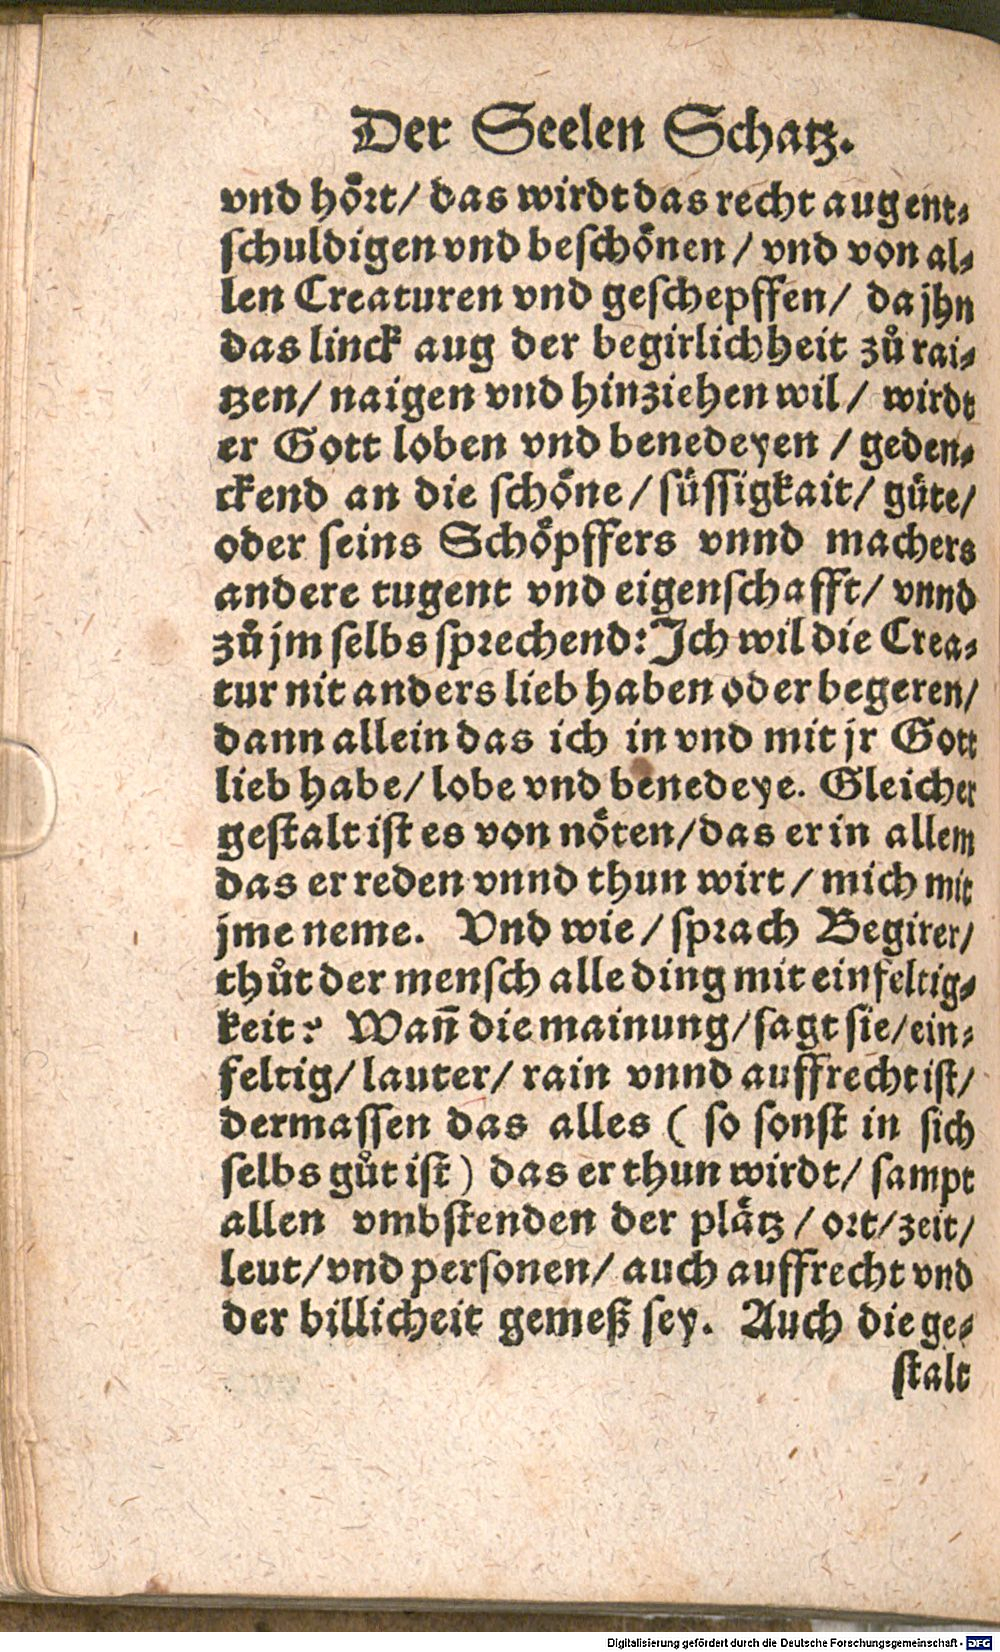 Der Seelen Schatz.
vnd hoͤrt/ das wirdt das recht aug ent⸗
schuldigen vnd beschoͤnen / vnd von al⸗
len Creaturen vnd geschepffen/ da jhn
das linck aug der begirlichheit zuͦ rai⸗
tzen/ naigen vnd hinziehen wil / wirdt
er Gott loben vnd benedeyen / geden⸗
ckend an die schoͤne / suͤssigkait/ guͤte/
oder seins Schoͤpffers vnnd machers
andere tugent vnd eigenschafft/ vnnd
zuͦ jm selbs sprechend: Ich wil die Crea⸗
tur nit anders lieb haben oder begeren/
dann allein das ich in vnd mit jr Gott
lieb habe/ lobe vnd benedeye. Gleicher
gestalt ist es von noͤten/das er in allem
das er reden vnnd thun wirt / mich mit
jme neme. Vnd wie / sprach Begirer/
thuͦt der mensch alle ding mit einfeltig⸗
keit? Wañ die mainung/sagt sie/ein⸗
feltig/ lauter/ rain vnnd auffrecht ist/
dermassen das alles ( so sonst in sich
selbs guͦt ist) das er thun wirdt/ sampt
allen vmbstenden der plaͤtz / ort/zeit/
leut/vnd personen/ auch auffrecht vnd
der billicheit gemeß sey. Auch die ge⸗
stalt
Digitalisierung gefördert durch die Deutsche Forschungsgemeinschaft - DFG